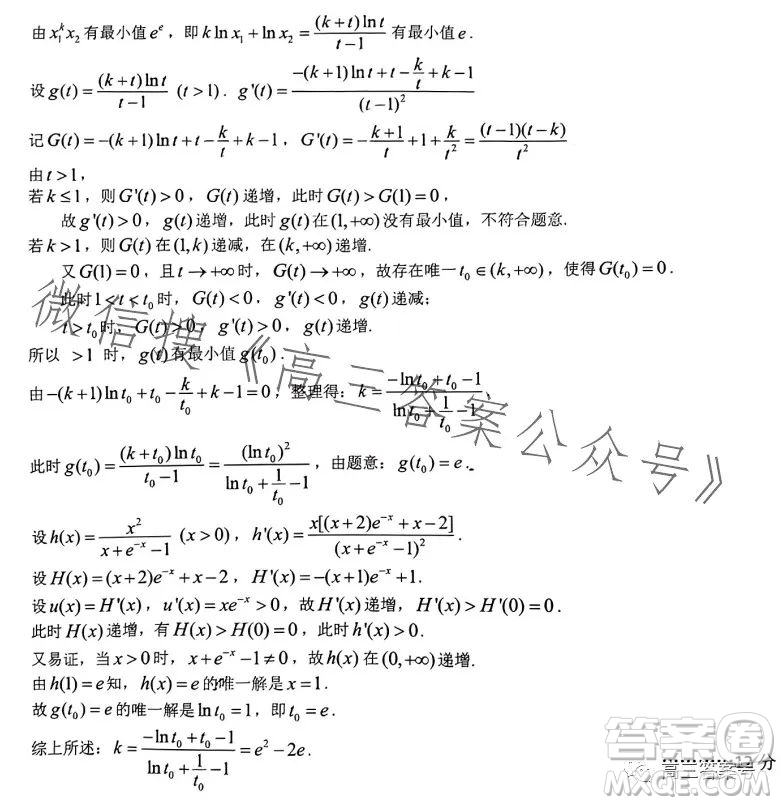 由 x₁ᵏx₂ 有最小值 eᵉ，即 k ln x₁ + ln x₂ = (k+t)ln t / (t−1) 有最小值 e.
设 g(t) = (k+t)ln t / (t−1) (t>1). g'(t) = [−(k+1)ln t + t − k/t + k − 1] / (t−1)²
记 G(t) = −(k+1)ln t + t − k/t + k − 1，G'(t) = −(k+1)/t + 1 + k/t² = (t−1)(t−k)/t²
由 t>1，
若 k≤1，则 G'(t)>0，G(t) 递增，此时 G(t)>G(1)=0，
故 g'(t)>0，g(t) 递增，此时 g(t) 在 (1,+∞) 没有最小值，不符合题意.
若 k>1，则 G(t) 在 (1,k) 递减，在 (k,+∞) 递增.
又 G(1)=0，且 t→+∞ 时，G(t)→+∞，故存在唯一 t₀∈(k,+∞)，使得 G(t₀)=0.
此时 1<t<t₀ 时，G(t)<0，g'(t)<0，g(t) 递减；
t>t₀ 时，G(t)>0，g'(t)>0，g(t) 递增.
所以 >1 时，g(t) 有最小值 g(t₀).
由 −(k+1)ln t₀ + t₀ − k/t₀ + k − 1 = 0，整理得：k = (−ln t₀ + t₀ − 1) / (ln t₀ + 1/t₀ − 1)
此时 g(t₀) = (k+t₀)ln t₀ / (t₀−1) = (ln t₀)² / (ln t₀ + 1/t₀ − 1)，由题意：g(t₀)=e.
设 h(x) = x² / (x+e⁻ˣ−1) (x>0)，h'(x) = x[(x+2)e⁻ˣ+x−2] / (x+e⁻ˣ−1)².
设 H(x)=(x+2)e⁻ˣ+x−2，H'(x)=−(x+1)e⁻ˣ+1.
设 u(x)=H'(x)，u'(x)=xe⁻ˣ>0，故 H'(x) 递增，H'(x)>H'(0)=0.
此时 H(x) 递增，有 H(x)>H(0)=0，此时 h'(x)>0.
又易证，当 x>0 时，x+e⁻ˣ−1≠0，故 h(x) 在 (0,+∞) 递增.
由 h(1)=e 知，h(x)=e 的唯一解是 x=1.
故 g(t₀)=e 的唯一解是 ln t₀=1，即 t₀=e.
综上所述：k = (−ln t₀ + t₀ − 1) / (ln t₀ + 1/t₀ − 1) = e²−2e.
…………12 分
微信搜《高三答案公众号》
答案圈
高三答案号
MXQE.COM